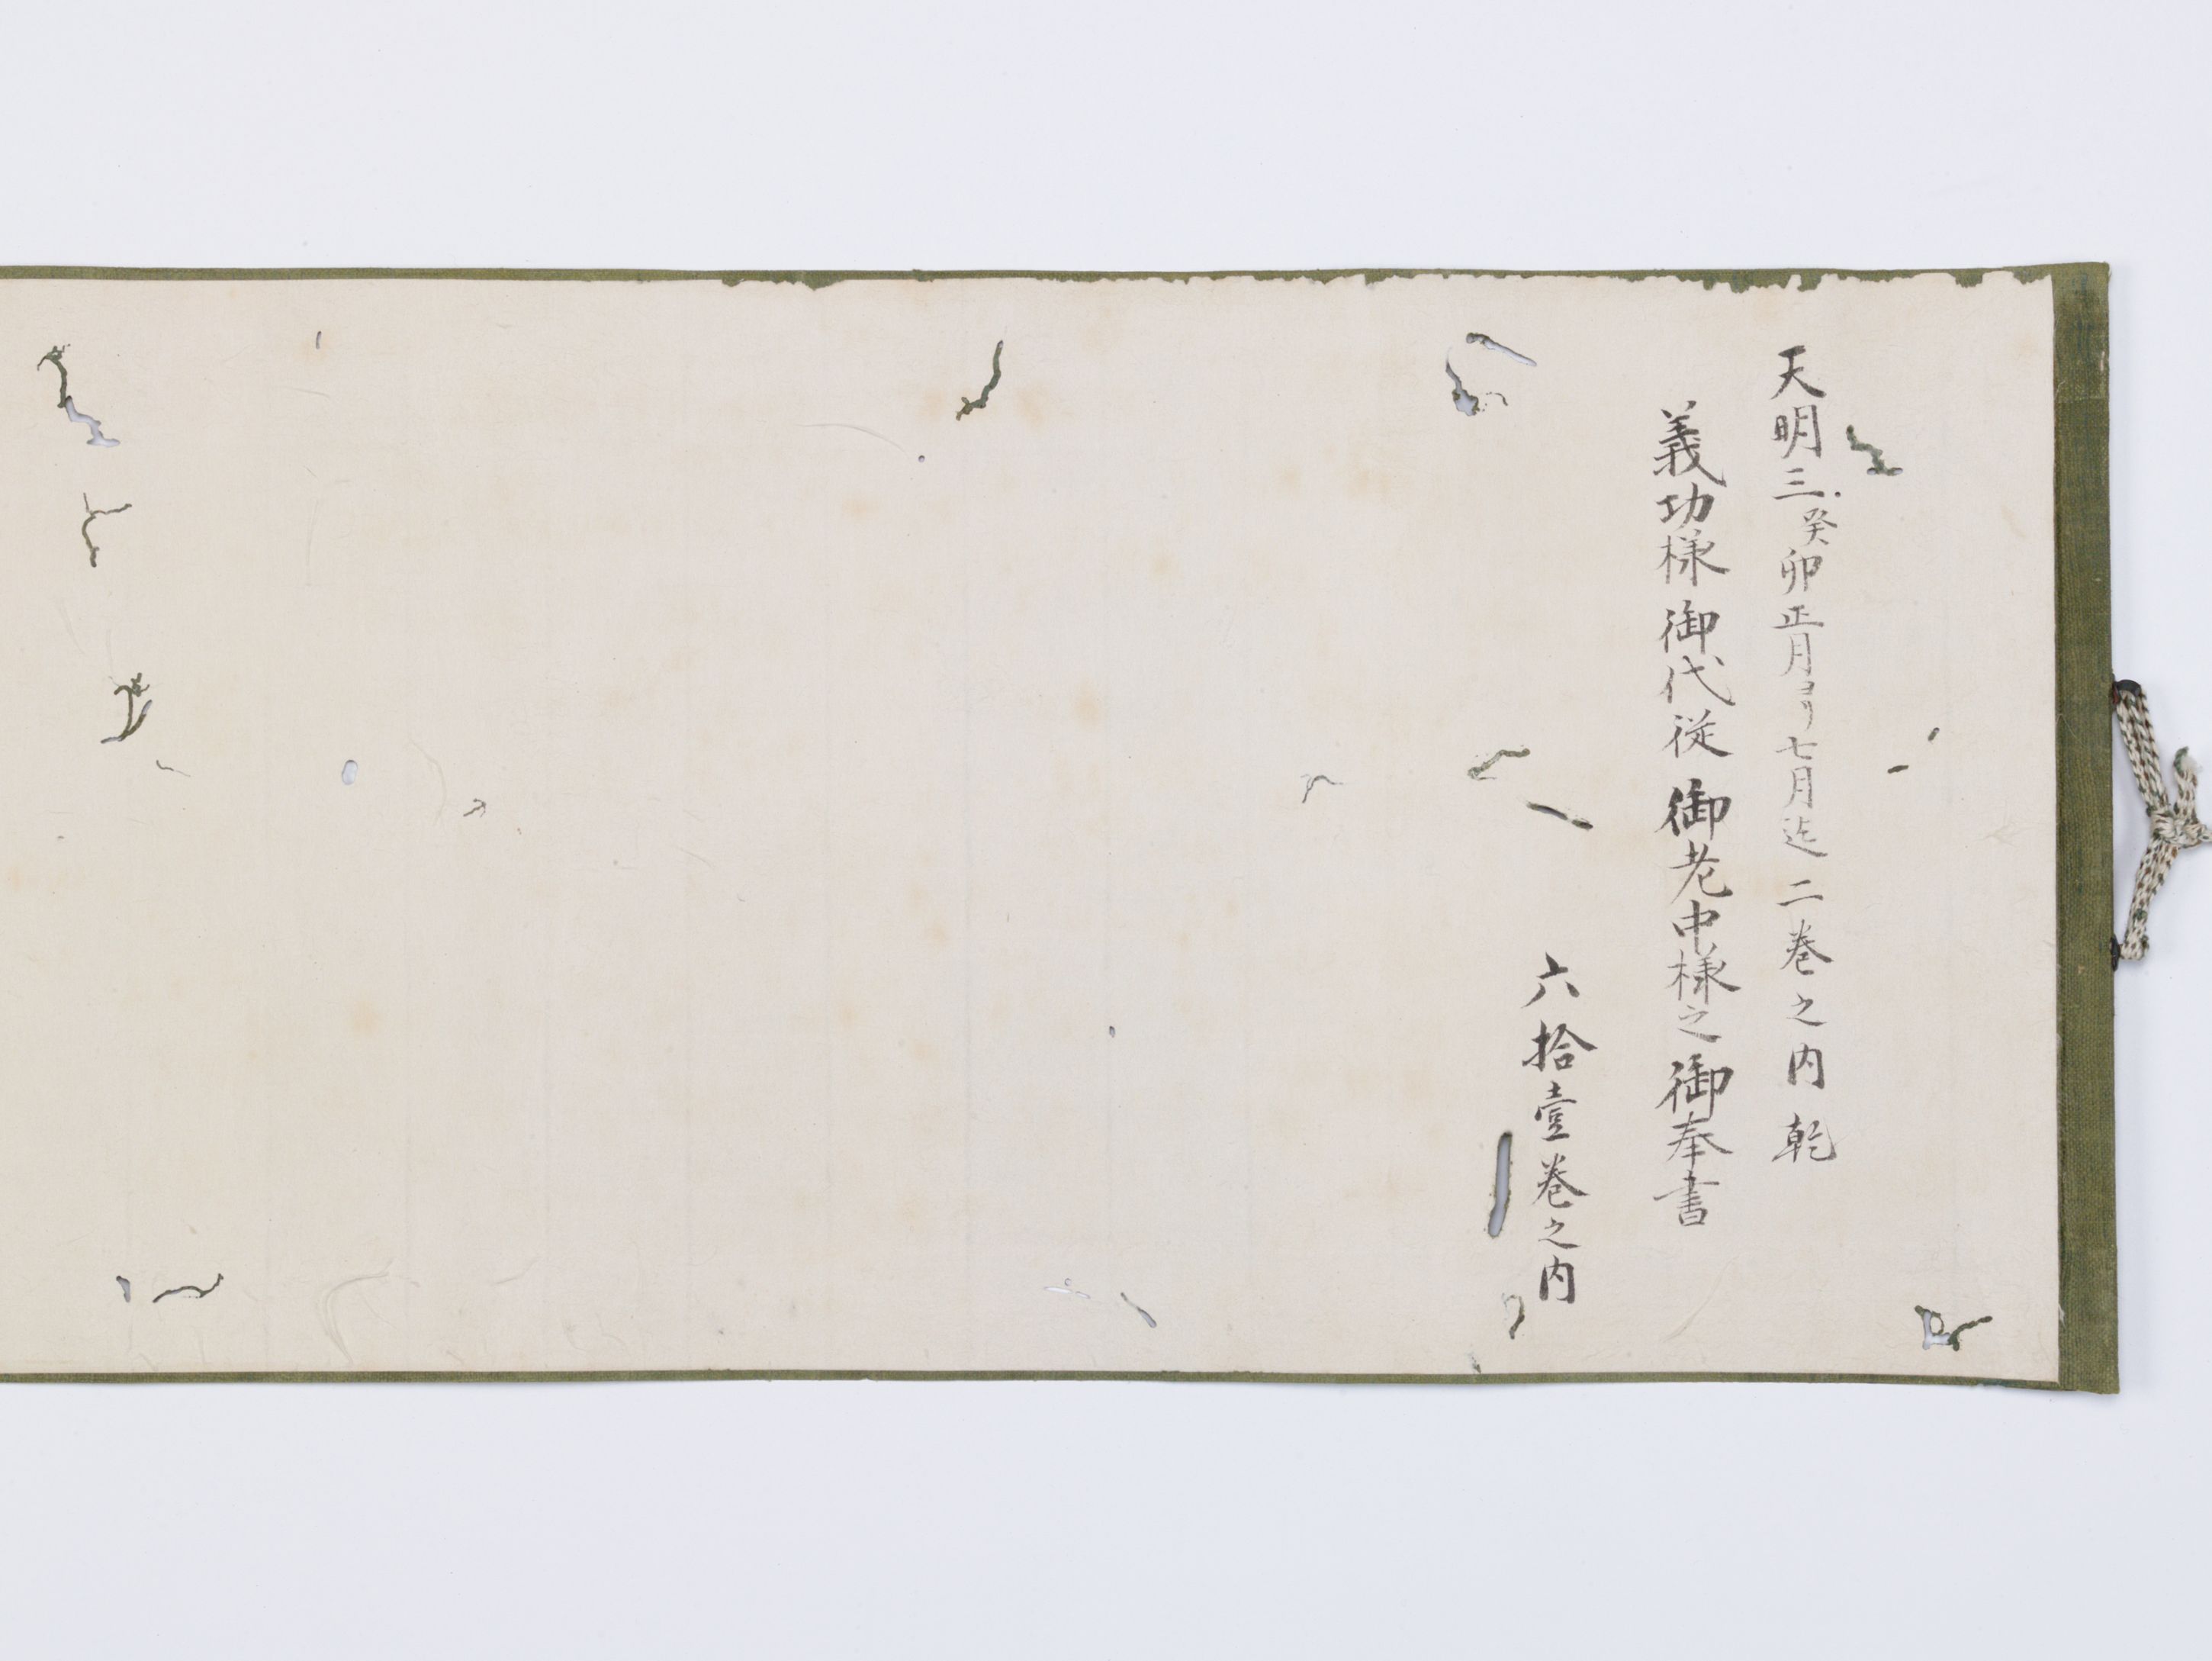 天明三癸卯正月ヨリ七月迄二巻之内乾
義功様御代従御老中様之御奉書
六拾壹巻之内